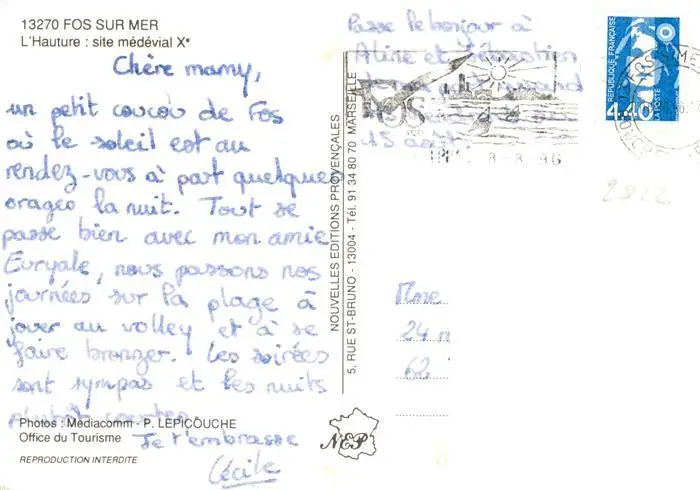 13270 FOS SUR MER
L'Hauture : site médévial Xᵉ
Chère mamy,
un petit coucou de Fos
où le soleil est au
rendez-vous à part quelques
orages la nuit. Tout se
passe bien avec mon amie
Euryale, nous passons nos
journées sur la plage à
jouer au volley et à se
faire bronzer. Les soirées
sont sympas et les nuits
plutôt courtes
Photos : Médiacomm - P. LEPICOUCHE
Office du Tourisme
Je t'embrasse
Cécile
REPRODUCTION INTERDITE
NOUVELLES EDITIONS PROVENÇALES
5, RUE ST-BRUNO - 13004 - Tél. 91 34 80 70 MARSEILLE
NEP
Passe le bonjour à
Aline et Sébastien
15 août.
FOS
8-8-96
REPUBLIQUE FRANÇAISE
LA POSTE
4,40
2822
Mme
24
62